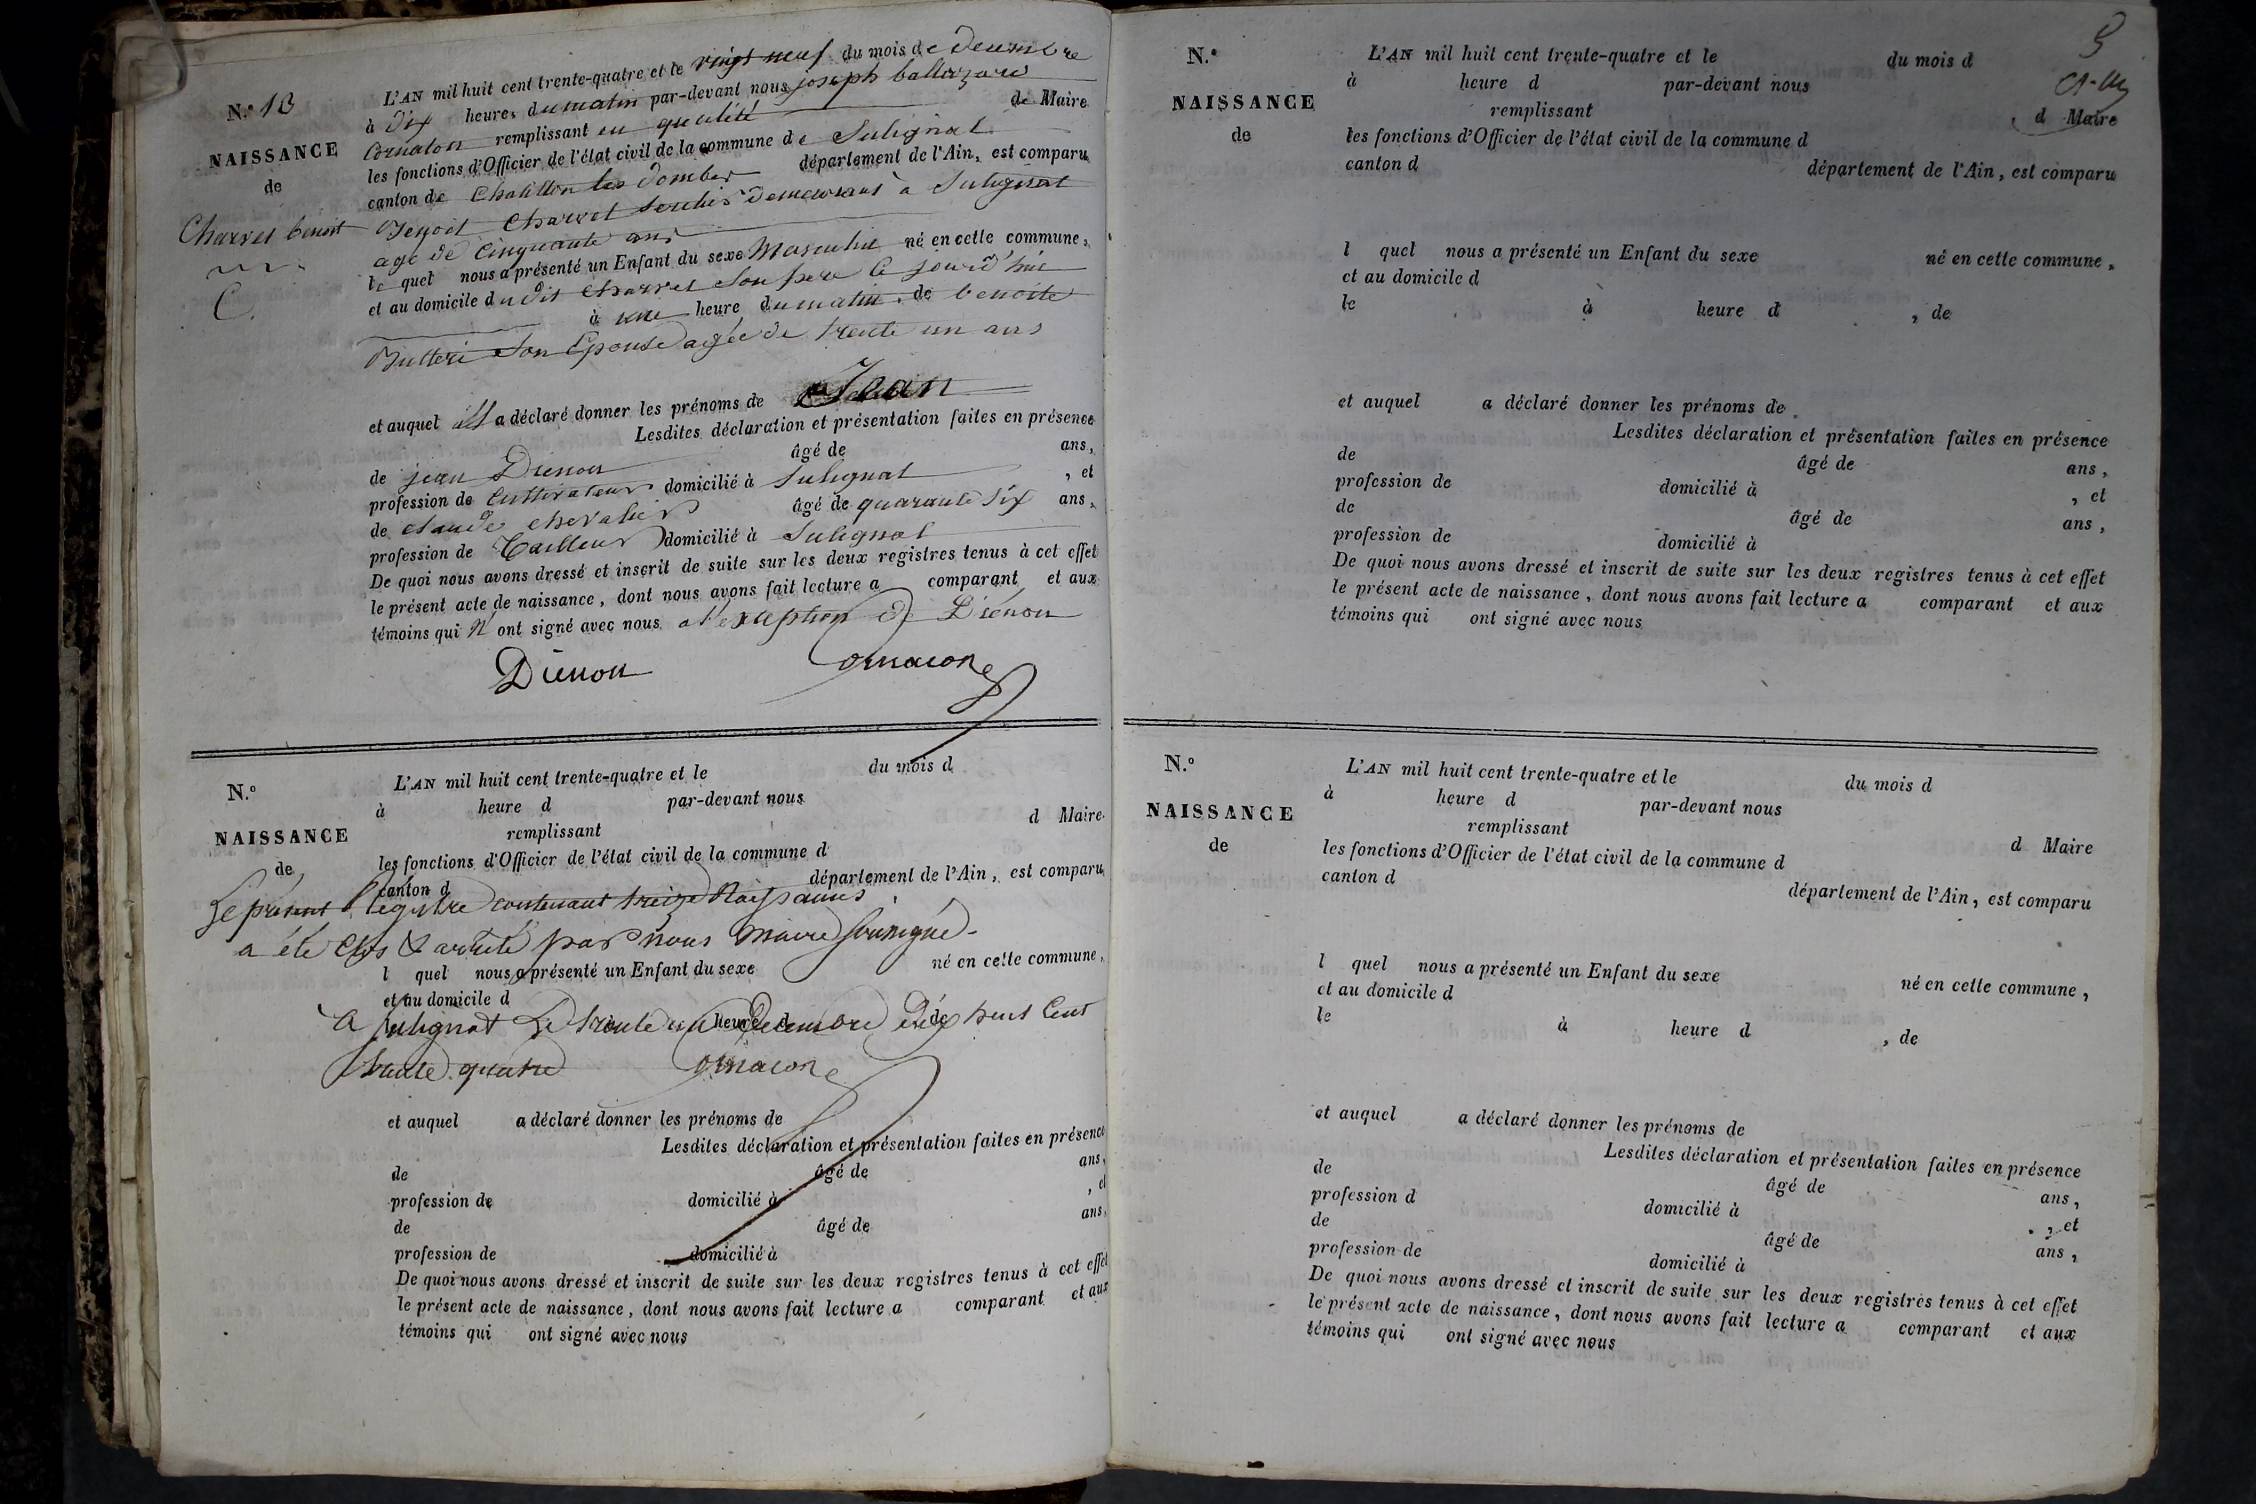 N.º 13
NAISSANCE
de
Charvet benoit
C.
L'AN mil huit cent trente-quatre et le vingt neuf du mois de decembre
à dix heures du matin par-devant nous joseph baltazard
Cornaton remplissant en qualité de Maire
les fonctions d'Officier de l'état civil de la commune de Sulignat
canton de Chatillon les Dombes département de l'Ain, est comparu
Benoit Charvet demeurant à Sulignat
agé de Cinquante ans
le quel nous a présenté un Enfant du sexe Masculin né en cette commune,
et au domicile dudit Charvet son pere ce jourd'hui
à une heure du matin, de benoite
Butteri son Epouse agée de trente un ans
et auquel il a déclaré donner les prénoms de Jean
Lesdites déclaration et présentation faites en présence
de jean Dienon âgé de ans,
profession de Cultivateur domicilié à Sulignat , et
de claude chevalier âgé de quarante six ans,
profession de Tailleur domicilié à Sulignat
De quoi nous avons dressé et inscrit de suite sur les deux registres tenus à cet effet
le présent acte de naissance, dont nous avons fait lecture a comparant et aux
témoins qui n' ont signé avec nous a l'exception de Dienon
Dienon
N.º
NAISSANCE
de
L'AN mil huit cent trente-quatre et le du mois d
à heure d par-devant nous
remplissant d Maire
les fonctions d'Officier de l'état civil de la commune d
canton d département de l'Ain, est comparu
Le present Registre contenant treize Naissances
a été Clos & arreté par nous Maire soussigné
l quel nous a présenté un Enfant du sexe né en cette commune,
et au domicile d
à heure d , de
A Sulignat Le trente un Decembre dix huit Cent
trente quatre
et auquel a déclaré donner les prénoms de
Lesdites déclaration et présentation faites en présence
de âgé de ans,
profession de domicilié à , et
de âgé de ans,
profession de domicilié à
De quoi nous avons dressé et inscrit de suite sur les deux registres tenus à cet effet
le présent acte de naissance, dont nous avons fait lecture a comparant et aux
témoins qui ont signé avec nous
9
N.º
NAISSANCE
de
L'AN mil huit cent trente-quatre et le du mois d
à heure d par-devant nous
remplissant d Maire
les fonctions d'Officier de l'état civil de la commune d
canton d département de l'Ain, est comparu
l quel nous a présenté un Enfant du sexe né en cette commune,
et au domicile d
le à heure d , de
et auquel a déclaré donner les prénoms de
Lesdites déclaration et présentation faites en présence
de âgé de ans,
profession de domicilié à , et
de âgé de ans,
profession de domicilié à
De quoi nous avons dressé et inscrit de suite sur les deux registres tenus à cet effet
le présent acte de naissance, dont nous avons fait lecture a comparant et aux
témoins qui ont signé avec nous
N.º
NAISSANCE
de
L'AN mil huit cent trente-quatre et le du mois d
à heure d par-devant nous
remplissant d Maire
les fonctions d'Officier de l'état civil de la commune d
canton d département de l'Ain, est comparu
l quel nous a présenté un Enfant du sexe né en cette commune,
et au domicile d
le à heure d , de
et auquel a déclaré donner les prénoms de
Lesdites déclaration et présentation faites en présence
de âgé de ans,
profession d domicilié à , et
de âgé de ans,
profession de domicilié à
De quoi nous avons dressé et inscrit de suite sur les deux registres tenus à cet effet
le présent acte de naissance, dont nous avons fait lecture a comparant et aux
témoins qui ont signé avec nous